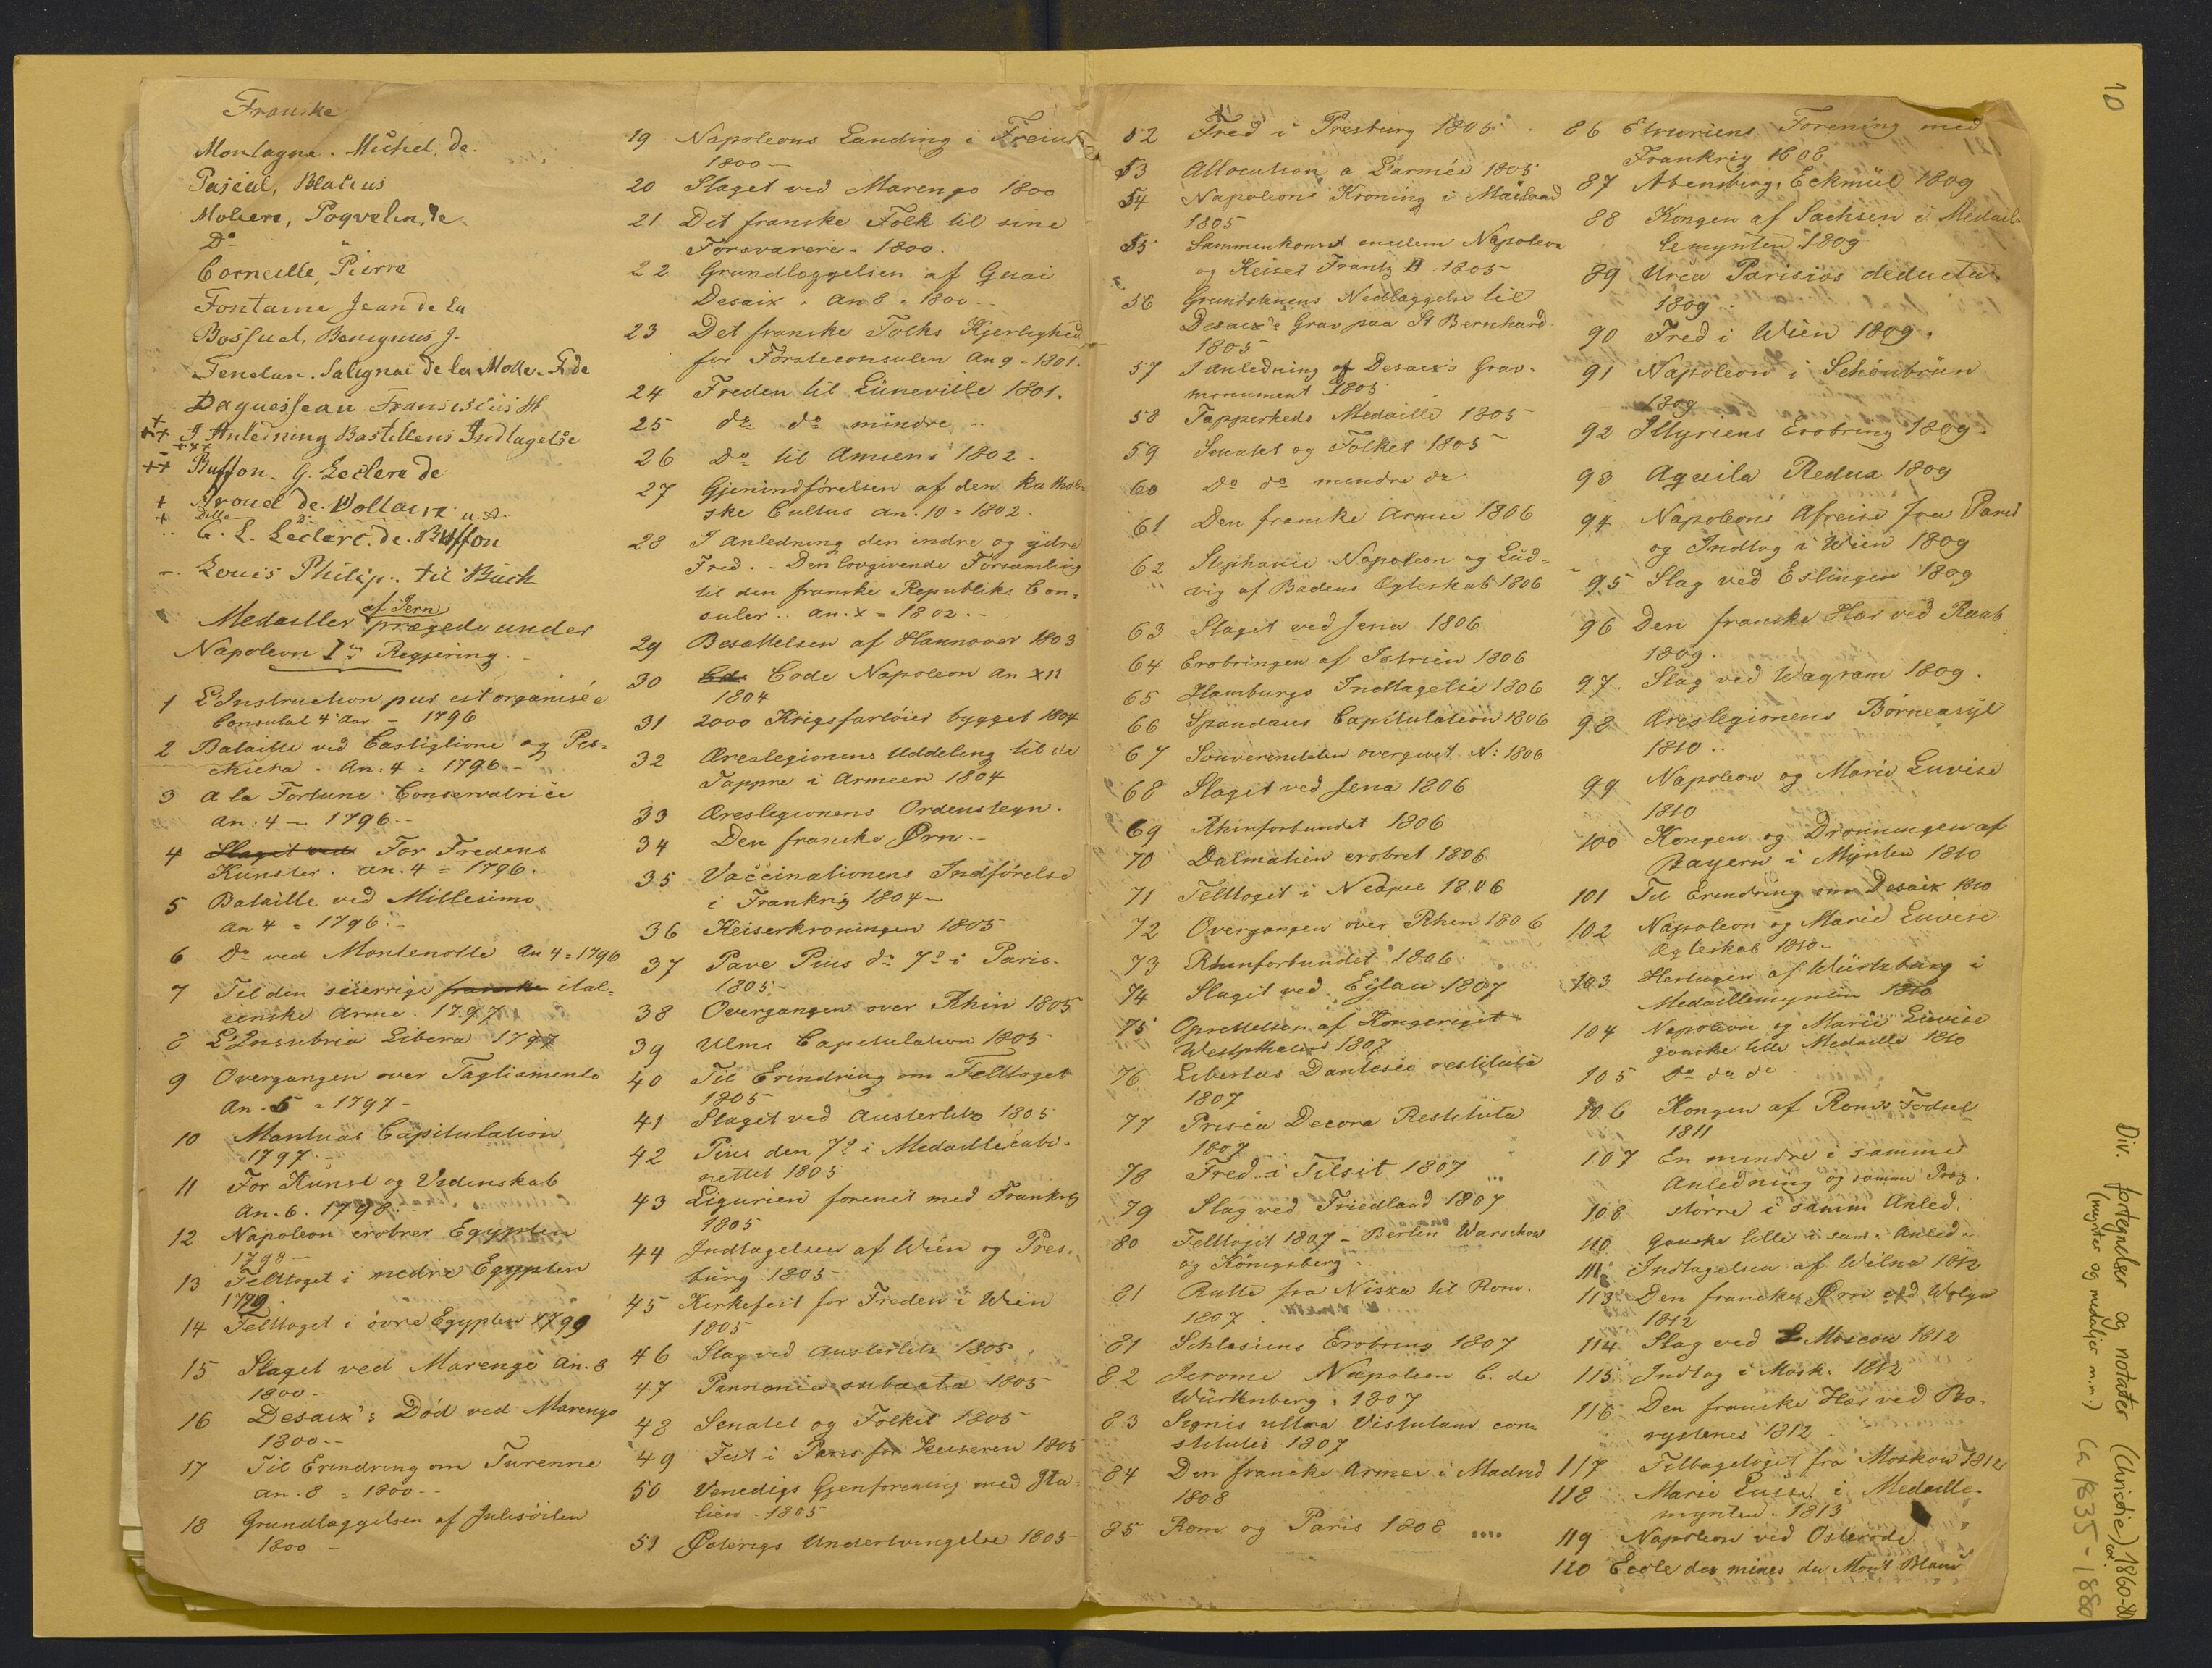 Franske
Montagne. Michel, de.
Pascal, Blatius
Moliere, Poqvelin, de
Do "
Corneille, Pierre
Fontaine Jean de la
Bossuet, Benignus J.
Fenelon. Salignac de la Motte. F. de
Daguesseau Fransiscus H
I Anledning Bastillens Indtagelse
Buffon. G. Leclerc de
Arouet de Voltaire u. A.
Ditto Do
G. L. Leclerc. de. Buffon
Louis Philip. til Buch
Medailler af Jern prægede under
Napoleon Ies Regjering.
1 L'Instruction pub. est organisée
Consulat 4 Aar - 1796
2 Bataille ved Castiglione og Pes-
chiera - An. 4 = 1796 -
3 a la Fortune Conservatrice
An: 4 - 1796. -
4 Slaget ved For Fredens
Kunster. an. 4 = 1796.
5 Bataille ved Millesimo
an 4 = 1796. -
6 Do ved Montenotte An 4 = 1796
7 Til den seierrige franske ital-
ienske Arme. 1797
8 L'Insubria Libera 1797
9 Overgangen over Tagliamento
An. 5 = 1797 -
10 Mantuas Capitulation
1797. -
11 For Kunst og Videnskab
An. 6. 1798.
12 Napoleon erobrer Egypten
1798 -
13 Felttoget i nedre Egypten
1799.
14 Felttoget i övre Egypten 1799
15 Slaget ved Marengo An. 8
1800 -
16 Desaix's Död ved Marengo
1800. -
17 Til Erindring om Turenne
an. 8 = 1800. -
18 Grundlæggelsen af Julisöilen
1800 -
19 Napoleons Landing i Freius
1800 -
20 Slaget ved Marengo 1800
21 Det franske Folk til sine
Forsvarere - 1800.
22 Grundlæggelsen af Quai
Desaix. An 8 = 1800 -
23 Det franske Folks Kjerlighed
for Försteconsulen An 9 = 1801.
24 Freden til Lüneville 1801.
25 do do mindre
26 Do til Amiens 1802.
27 Gjenindförelsen af den kathol-
ske Cultus an. 10 = 1802.
28 I Anledning den indre og ydre
Fred. - Den lovgivende Forsamling
til den franske Republiks Con-
suler. an. X = 1802. -
29 Besættelsen af Hannover 1803
30 Code Napoleon An XII
1804
31 2000 Krigsfartöier bygget 1804
32 Æreslegionens Uddeling til de
Tappre i Armeen 1804
33 Æreslegionens Ordenstegn.
34 Den franske Ørn -
35 Vaccinationens Indförelse
i Frankrig 1804 -
36 Keiserkroningen 1805
37 Pave Pius dn 7de i Paris.
1805. -
38 Overgangen over Rhin 1805
39 Ulms Capitulation 1805
40 Til Erindring om Felttoget
1805 -
41 Slaget ved Austerlitz 1805
42 Pius den 7de i Medaillecabi-
nettet 1805
43 Ligurien forenet med Frankrig
1805
44 Indtagelsen af Wien og Pres-
burg 1805
45 Kirkefest for Freden i Wien
1805
46 Slag ved Austerlitz 1805
47 Pannonia subacta 1805
48 Senatet og Folket 1805
49 Fest i Paris for Keiseren 1805
50 Venedigs Gjenforening med Ita-
lien. 1805
51 Østerigs Undertvingelse 1805
52 Fred i Presburg 1805
53 Allocution a L'armée 1805
54 Napoleons Kroning i Mailand
1805
55 Sammenkomst mellem Napoleon
og Keiser Frantz II. 1805
56 Grundstenens Nedlæggelse til
Desaix's Grav paa St Bernhard
1805
57 I anledning af Desaix's Grav-
monument 1805
58 Tapperheds Medaille 1805
59 Senatet og Folket 1805
60 Do do mindre do
61 Den franske Armee 1806
62 Stephanie Napoleon og Lud-
vig af Badens Ægteskab 1806
63 Slaget ved Jena 1806
64 Erobringen af Istrien 1806
65 Hamburgs Indtagelse 1806
66 Spandaus Capitulation 1806
67 Souvereniteten overgivet N: 1806
68 Slaget ved Jena 1806
69 Rhinforbundet 1806
70 Dalmatien erobret 1806
71 Felttoget i Neapel 1806
72 Overgangen over Rhin 1806
73 Rhinforbundet 1806
74 Slaget ved Eylau 1807
75 Oprettelsen af Kongeriget
Westphalen 1807
76 Libertas Dantesio restituta
1807
77 Prisca Decora Restituta
1807
78 Fred i Tilsit 1807
79 Slag ved Friedland 1807
80 Felttoget 1807 - Berlin Warschow
og Königsberg.
81 Rutte fra Nizza til Rom.
1807.
81 Schlesiens Erobring 1807
82 Jerome Napoleon C. de
Würtenberg. 1807
83 Signis ultra Vistulam con-
stitutis 1807
84 Den franske Armee i Madrid
1808
85 Rom og Paris 1808 ....
86 Etruriens Forening med
Frankrig 1808
87 Abensberg, Eckmül 1809
88 Kongen af Sachsen i Medail-
lemynten 1809
89 Urca Parisios deducta
1809.
90 Fred i Wien 1809.
91 Napoleon i Schönbrün
1809
92 Illyriens Erobring 1809.
93 Aquila Redux 1809
94 Napoleons Afreise fra Paris
og Indtog i Wien 1809
95 Slag ved Eslingen 1809
96 Den franske Hær ved Raab
1809.
97 Slag ved Wagram 1809.
98 Æreslegionens Börneasyl
1810.
99 Napoleon og Marie Luvise
1810
100 Kongen og Dronningen af
Bayern i Mynten 1810
101 Til Erindring om Desaix 1810
102 Napoleon og Marie Luvise
Ægteskab 1810.
103 Hertugen af Würtzburg i
Medaillemynten 1810
104 Napoleon og Marie Luvise
ganske lille Medaille 1810
105 Do do do
106 Kongen af Roms Födsel
1811
107 En mindre i samme
Anledning og samme Præg.
108 större i samme Anled.
110 Ganske lille i sam. Anled.
111 Indtagelsen af Wilna 1812
113 Den franske Ørn ved Wolga
1812
114 Slag ved Moscou 1812
115 Indtog i Mosk. 1812
116 Den franske Hær ved Bo-
rystenes 1812
117 Tilbagetoget fra Moskow 1812
118 Marie Luise i Medaille-
mynten. 1813
119 Napoleon ved Osterode
120 Ecole des mines du Mont Blanc
10
Div. fortegnelser og notater (Christie) 1860-80
(mynter og medaljer m.m.) ca 1835-1880